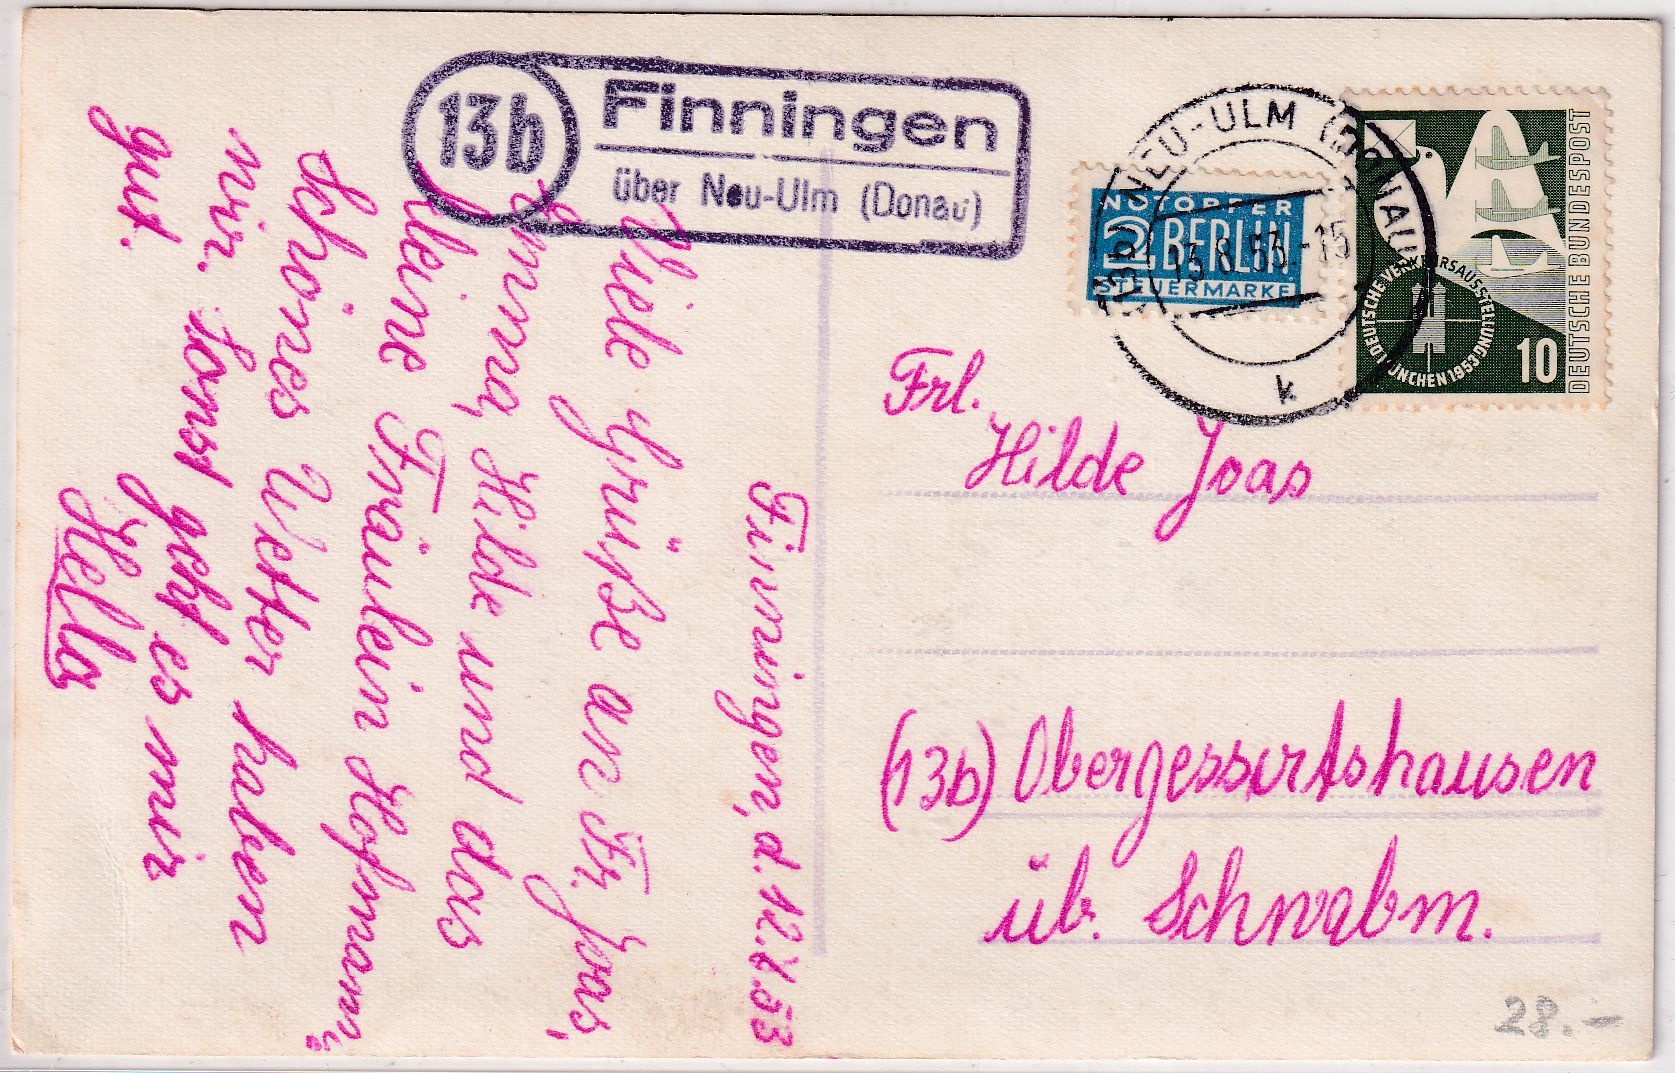 13b
Finningen
über Neu-Ulm (Donau)
NEU-ULM (DONAU)
13.8.53.-15
k
NOTOPFER
2 BERLIN
STEUERMARKE
DEUTSCHE BUNDESPOST
DEUTSCHE VERKEHRSAUSSTELLUNG
MÜNCHEN 1953
10
Finningen, d. 12.8.53
Viele Grüße an Fr. Joas,
Emma, Hilde und das
kleine Fräulein Hofmann,
Schönes Wetter haben
wir. Sonst geht es mir
gut.
Hella
Frl.
Hilde Joas
(13b) Obergessertshausen
üb. Schwabm.
28.-